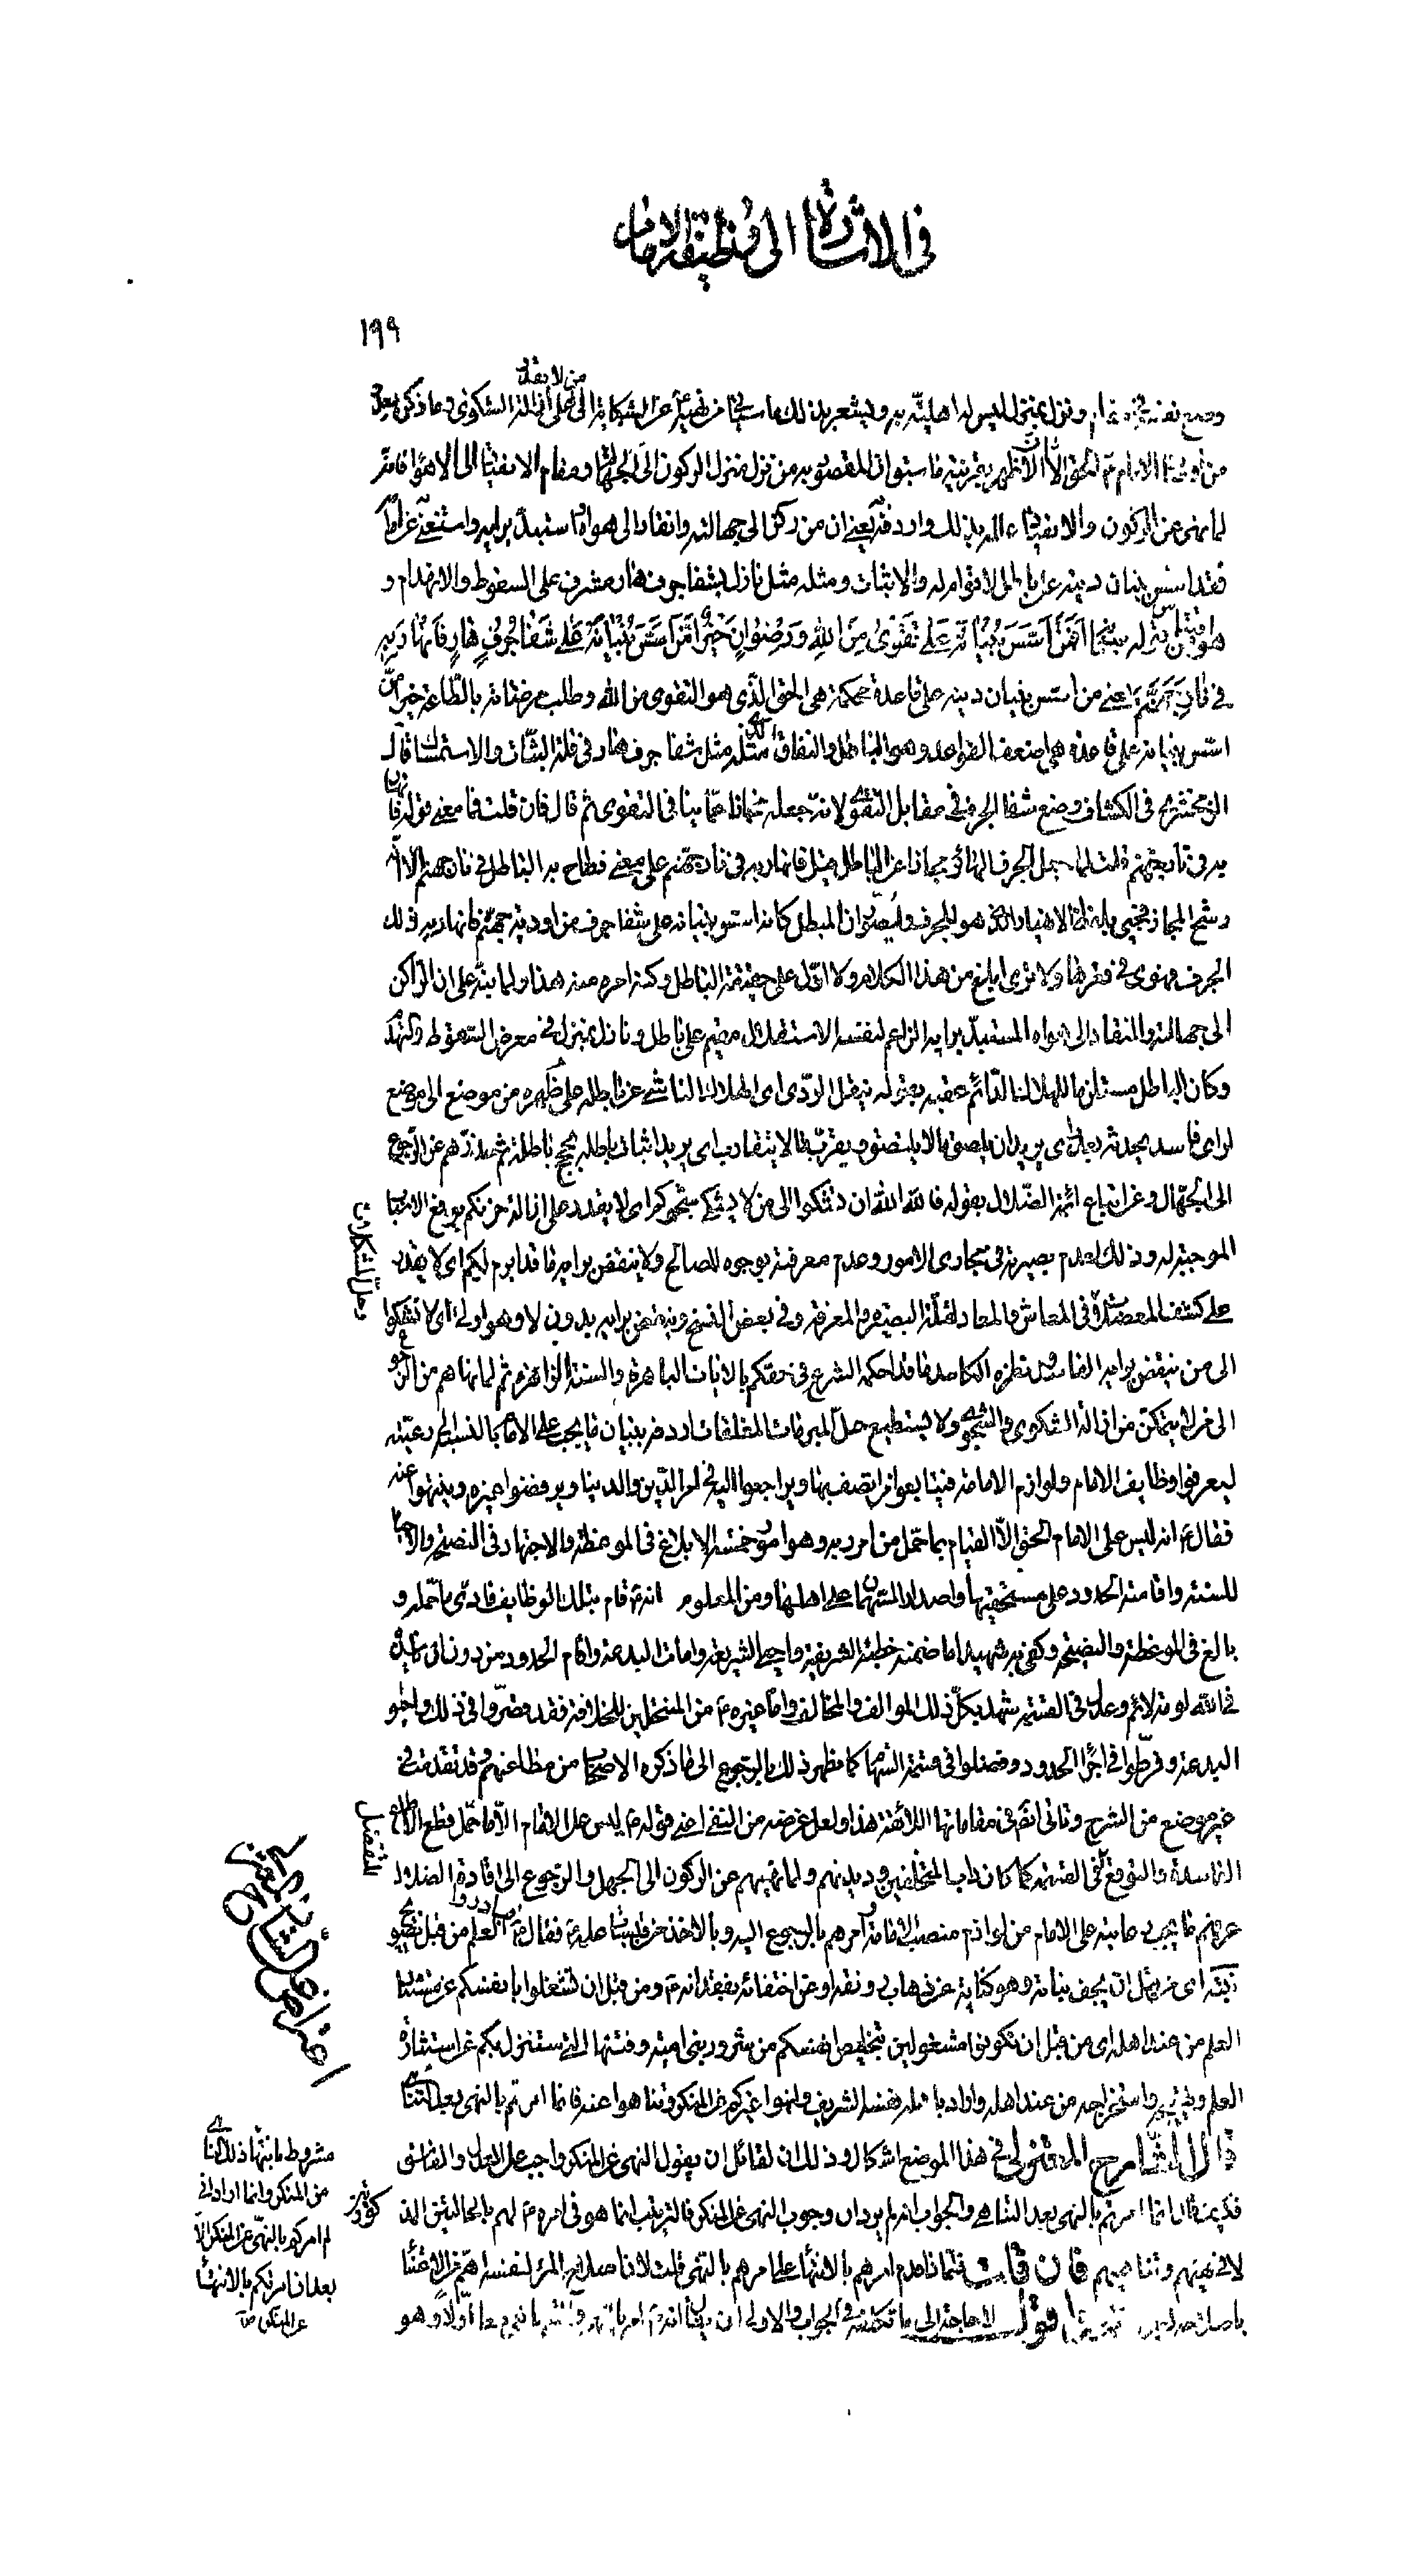 في الاشارة الى وظيفة الامام
١٩٩
من لا يقدر
ونزل بمنزل ليس له اهليته به ويشعر بذلك ما سيأتي من نهيه عن الشكاية الى على ازالة الشكوى وما ذكرنا
من الامام الحق الا ان الاظهر بقرينة ما سبق ان المقصود به من نزل منزل الركون الى الجهالة ومقام الانقياد الى الاهواء فانه
لما نهى عن الركون والانقياد بذلك واردفه يعني ان من ركن الى جهالته وانقاد الى هواه واستبد برأيه واستغنى عن امام
فقد اسس بنيان دينه على باطل لا قوام له والاثبات ومثله مثل نازل بشفا جرف هار مشرف على السقوط والانهدام و
هو اقتباس من قوله سبحانه افمن اسس بنيانه على تقوى من الله ورضوان خير امن اسس بنيانه على شفا جرف هار فانهار به
في نار جهنم يعني من اسس بنيان دينه على قاعدة محكمة هي الحق الذي هو التقوى من الله وطلب مرضاته بالطاعة خير امن
اسس بنيانه على قاعدة هي اضعف القواعد وهو الباطل والنفاق الذي مثله مثل شفا جرف هار في قلة الثبات والاستمساك قال
الزمخشري في الكشاف وضع شفا الجرف في مقابل التقوى لانه جعله مجازا عما ينافي التقوى ثم قال فان قلت فما معنى قوله فانهار
به في نار جهنم قلت لما جعل الجرف الهائر مجازا عن الباطل قيل فانهار به في نار جهنم على معنى فطاح به الباطل في نار جهنم الا انه
رشح المجاز فجيء بلفظ الانهيار الذي هو للجرف وليصور ان المبطل كانه اسس بنيانه على شفا جرف من اودية جهنم فانهار به ذلك
الجرف فهوى في قعرها ولا ترى ابلغ من هذا الكلام ولا ادل على حقيقة الباطل وكنه امره منه هذا ولما نبه على ان الراكن
الى جهالته والمنقاد الى هواه المستبد برأيه الزاعم لنفسه الاستقلال مقيم على باطل ونازل بمنزل في معرض السقوط والتهدم
وكان الباطل مستلزما للهلاك الدائم عقبه بقوله ينقل الردى اي الهلاك الناشي عن باطله على ظهره من موضع الى موضع
لرأي فاسد يحدثه بعد رأي يريد ان يلصق ما لا يلتصق ويقرب ما لا يتقارب اي يريد اثبات باطله بحجج باطلة ثم حذرهم عن الرجوع
الى الجهال وعن اتباع ائمة الضلال بقوله فالله الله ان تشكوا الى من لا يشكي شجوكم اي لا يقدر على ازالة حزنكم برفع الاسباب
الموجبة له وذلك لعدم بصيرته في مجاري الامور وعدم معرفته بوجوه المصالح ولا ينقض برأيه ما قد ابرم لكم اي لا يقدر
على كشف المعضلات في المعاش والمعاد لقلة البصيرة والمعرفة وفي بعض النسخ وينقض برأيه بدون لا وهو اولى اي لا تشكوا
الى من ينقض برأيه الفاسد ونظره الكاسد ما قد احكمه الشرع في حقكم بالايات الباهرة والسنة الزاهرة ثم لما نهاهم من الرجوع
الى من لا يتمكن من ازالة الشكوى والشجو ولا يستطيع حل المبرمات المغلقات اردفه ببيان ما يجب على الامام بالنسبة الى رعيته
ليعرفوا وظايف الامام ولوازم الامامة فيتابعوا من اتصف بها ويراجعوا اليه في امر الدين والدنيا ويرفضوا غيره وينتهوا عنه
فقال انه ليس على الامام الحق الا القيام بما حمل من امر ربه وهو امور خمسة الابلاغ في الموعظة والاجتهاد في النصيحة والاحياء
للسنة واقامة الحدود على مستحقيها واصدار السهمان على اهلها ومن المعلوم انه قام بتلك الوظايف فادى ما حمله و
بالغ في الموعظة والنصيحة وكفى به شهيدا ما ضمنه خطبه الشريفة واحيى الشريعة وامات البدعة واقام الحدود من دون ان تأخذه
في الله لومة لائم وعدل في القسمة شهد بكل ذلك الموالف والمخالف واما غيره من المنتحلين للخلافة فقد قصروا في ذلك واحيوا
البدعة وفرطوا في اجراء الحدود وفضلوا في قسمة السهام كما يظهر ذلك بالرجوع الى ما ذكره الاصحاب من مطاعنهم وقد تقدمت في
غير موضع من الشرح وتاتي ايضا في مقاماتها اللائقة هذا ولعل غرضه من النفي اعني قوله ليس على الامام الا ما حمل قطع الاطماع
الفاسدة والتوقع في القسمة كما كان داب المتخلفين وديدنهم ولما نهيهم عن الركون الى الجهل والرجوع الى قادة الضلال
عرفهم ما يجب على الامام من لوازم منصب الامامة وامرهم بالرجوع اليه وبالاخذ من فقال فبادروا العلم من قبل تصويح
نبته اي من قبل ان يجف نباته وهو كناية عن ذهاب رونقه او عن اختفائه بفقدانه ومن قبل ان تشغلوا بانفسكم عن مستثار
العلم من عند اهله اي من قبل ان تكونوا مشغولين بتخليص انفسكم من شرور بني امية وفتنها التي ستنزل بكم عن استثارة
العلم واستخراجه من عند اهله واراد باهله نفسه الشريف وانهوا غيركم عن المنكر وتناهوا عنه فانما امرتم بالنهي بعد التناهي
قال الشارح المعتزلي في هذا الموضع اشكال وذلك ان لقائل ان يقول النهي عن المنكر واجب على العدل والفاسق
فكيف قال انما امرتم بالنهي بعد التناهي والجواب انه لم يرد ان وجوب النهي عن المنكر فالترتيب انما هو في امره لهم بالحالتين الم
لا في نهيهم وتناهيهم فان قلت فلماذا قدم امرهم بالانتهاء على امرهم بالنهي قلت لان اصلاح المرء لنفسه اهم من الاعتناء
باصلاحه اقول لا حاجة الى ما تكلفه في الجواب والاولى ان يقال انه
وحل المشكلات
للتفضل
مشروط بانتهاء ذلك الناهي
من المنكر وانما اراد اني
لم امركم بالنهي عن المنكر الا
بعد ان امرتكم بالانتهاء
عن المنكر